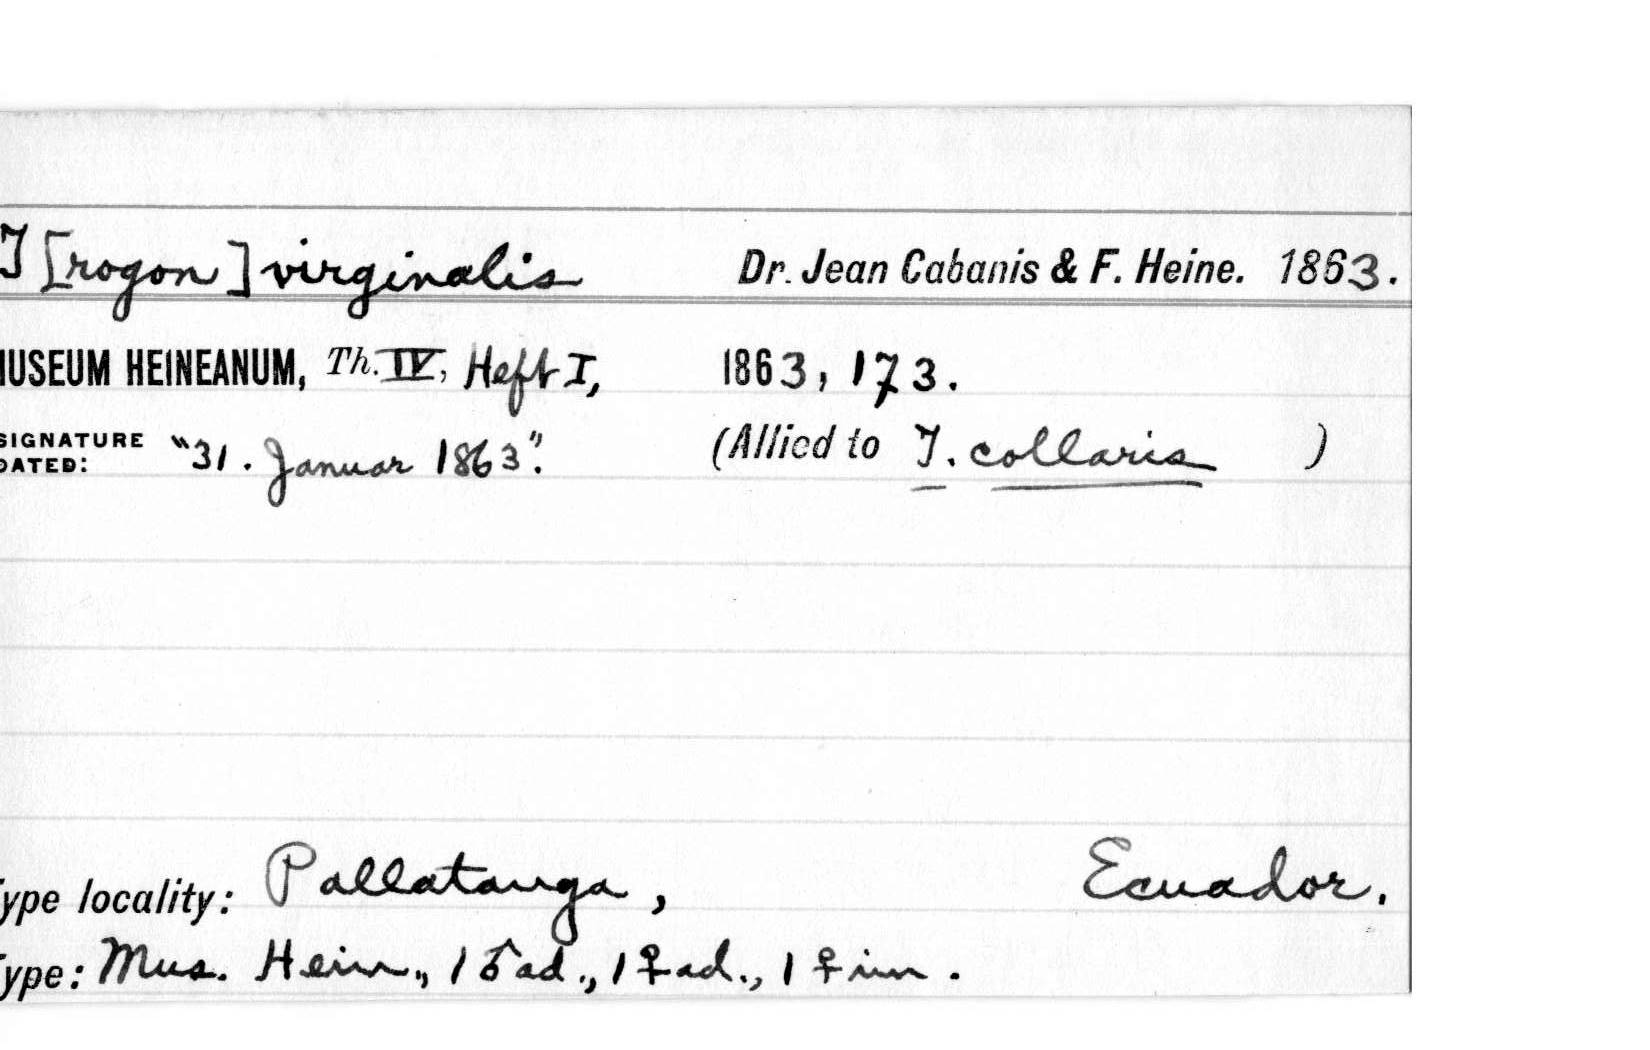 T[rogon] virginalis Dr. Jean Cabanis & F. Heine. 1863.
MUSEUM HEINEANUM, Th. IV, Heft I, 1863, 173.
SIGNATURE DATED: "31. Januar 1863". (Allied to T. collaris )
Type locality: Pallatanga, Ecuador.
Type: Mus. Hein., 1 ♂ ad., 1 ♀ ad., 1 ♀ im.